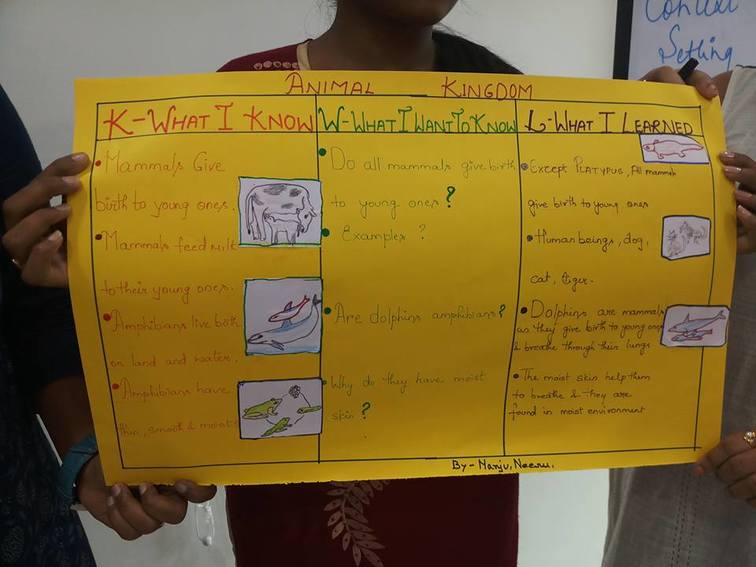 Context
Setting
ANIMAL KINGDOM
K-WHAT I KNOW
• Mammals Give
birth to young ones.
• Mammals feed milk
to their young ones.
• Amphibians live both
on land and water.
• Amphibians have
thin, smooth & moist
W-WHAT I WANT TO KNOW
• Do all mammals give birth
to young ones?
• Examples?
• Are dolphins amphibians?
• Why do they have moist
skin?
L-WHAT I LEARNED
• EXCEPT PLATYPUS, All mammals
give birth to young ones
• Human beings, dog,
cat, tiger.
• Dolphins are mammals
as they give birth to young ones
& breathe through their lungs
• The moist skin help them
to breathe & they are
found in moist environment
By- Manju, Neenu.